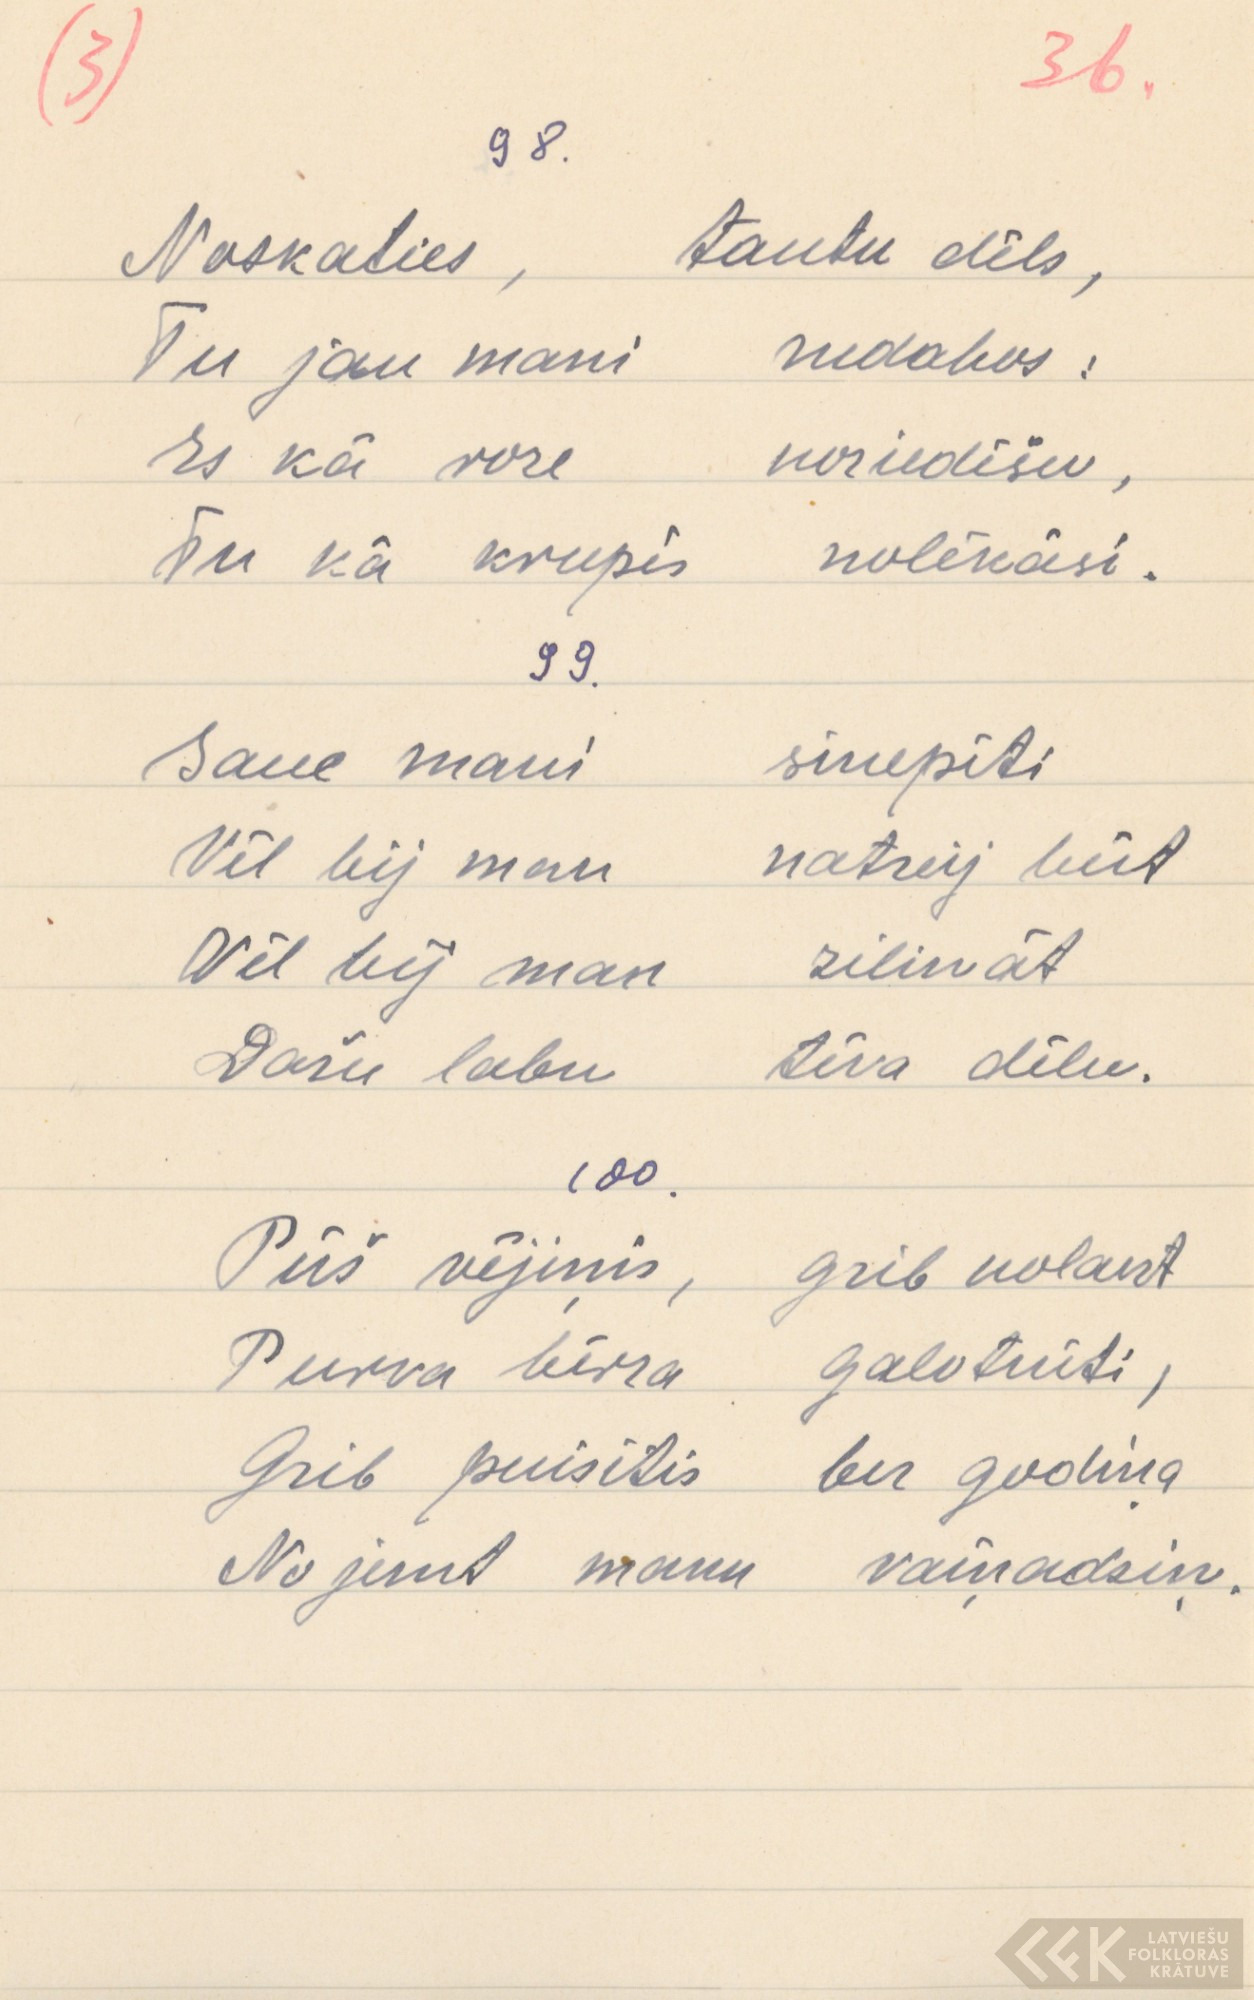 (3) 36.
98.
Noskaties, tautu dēls,
Tu jau mani nedabos:
Es kā roze noziedēšu,
Tu kā krupis nolēkāsi.
99.
Sauc mani sinepīti
Vēl bij man natrij būt
Vēl bij man zilināt
Dažu labu tēva dēlu.
100.
Pūš vējiņis, grib nolauzt
Purva bērza galotnīti,
Grib puisītis bez godiņa
Nojemt manu vaiņadziņ.
LATVIEŠU
FOLKLORAS
KRĀTUVE